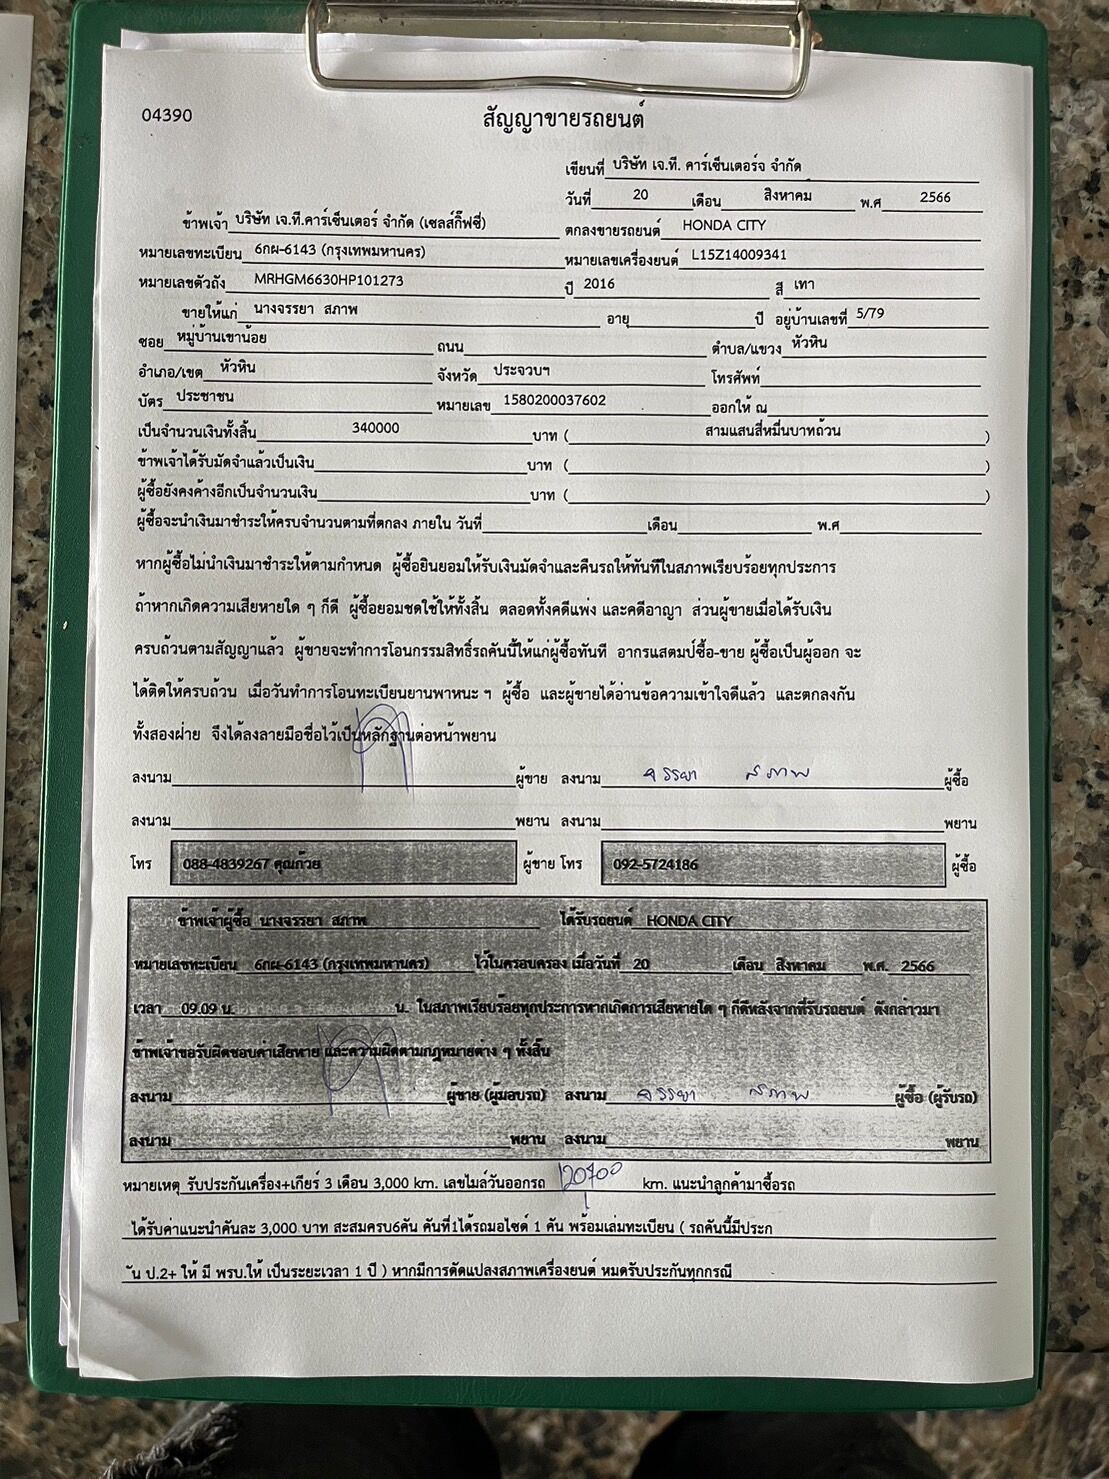 04390
สัญญาขายรถยนต์
เขียนที่ บริษัท เจ.ที. คาร์เซ็นเตอร์จ จำกัด
วันที่ 20 เดือน สิงหาคม พ.ศ 2566
ข้าพเจ้า บริษัท เจ.ที.คาร์เซ็นเตอร์ จำกัด (เซลส์กิ๊ฟซี่) ตกลงขายรถยนต์ HONDA CITY
หมายเลขทะเบียน 6กผ-6143 (กรุงเทพมหานคร) หมายเลขเครื่องยนต์ L15Z14009341
หมายเลขตัวถัง MRHGM6630HP101273 ปี 2016 สี เทา
ขายให้แก่ นางจรรยา สภาพ อายุ ปี อยู่บ้านเลขที่ 5/79
ซอย หมู่บ้านเขาน้อย ถนน ตำบล/แขวง หัวหิน
อำเภอ/เขต หัวหิน จังหวัด ประจวบฯ โทรศัพท์
บัตร ประชาชน หมายเลข 1580200037602 ออกให้ ณ
เป็นจำนวนเงินทั้งสิ้น 340000 บาท ( สามแสนสี่หมื่นบาทถ้วน )
ข้าพเจ้าได้รับมัดจำแล้วเป็นเงิน บาท ( )
ผู้ซื้อยังคงค้างอีกเป็นจำนวนเงิน บาท ( )
ผู้ซื้อจะนำเงินมาชำระให้ครบจำนวนตามที่ตกลง ภายใน วันที่ เดือน พ.ศ
หากผู้ซื้อไม่นำเงินมาชำระให้ตามกำหนด ผู้ซื้อยินยอมให้รับเงินมัดจำและคืนรถให้ทันทีในสภาพเรียบร้อยทุกประการ
ถ้าหากเกิดความเสียหายใด ๆ ก็ดี ผู้ซื้อยอมชดใช้ให้ทั้งสิ้น ตลอดทั้งคดีแพ่ง และคดีอาญา ส่วนผู้ขายเมื่อได้รับเงิน
ครบถ้วนตามสัญญาแล้ว ผู้ขายจะทำการโอนกรรมสิทธิ์รถคันนี้ให้แก่ผู้ซื้อทันที อากรแสตมป์ซื้อ-ขาย ผู้ซื้อเป็นผู้ออก จะ
ได้ติดให้ครบถ้วน เมื่อวันทำการโอนทะเบียนยานพาหนะ ฯ ผู้ซื้อ และผู้ขายได้อ่านข้อความเข้าใจดีแล้ว และตกลงกัน
ทั้งสองฝ่าย จึงได้ลงลายมือชื่อไว้เป็นหลักฐานต่อหน้าพยาน
ลงนาม ผู้ขาย ลงนาม จรรยา สภาพ ผู้ซื้อ
ลงนาม พยาน ลงนาม พยาน
โทร 088-4839267 คุณก้วย ผู้ขาย โทร 092-5724186 ผู้ซื้อ
ข้าพเจ้าผู้ซื้อ นางจรรยา สภาพ ได้รับรถยนต์ HONDA CITY
หมายเลขทะเบียน 6กผ-6143 (กรุงเทพมหานคร) ไว้ในครอบครอง เมื่อวันที่ 20 เดือน สิงหาคม พ.ศ. 2566
เวลา 09.09 น. น. ในสภาพเรียบร้อยทุกประการหากเกิดการเสียหายใด ๆ ก็ดีหลังจากที่รับรถยนต์ ดังกล่าวมา
ข้าพเจ้าขอรับผิดชอบค่าเสียหาย และความผิดตามกฎหมายต่าง ๆ ทั้งสิ้น
ลงนาม ผู้ขาย (ผู้มอบรถ) ลงนาม จรรยา สภาพ ผู้ซื้อ (ผู้รับรถ)
ลงนาม พยาน ลงนาม พยาน
หมายเหตุ รับประกันเครื่อง+เกียร์ 3 เดือน 3,000 km. เลขไมล์วันออกรถ 120700 km. แนะนำลูกค้ามาซื้อรถ
ได้รับค่าแนะนำคันละ 3,000 บาท สะสมครบ6คัน คันที่1ได้รถมอไซด์ 1 คัน พร้อมเล่มทะเบียน ( รถคันนี้มีประก
ัน ป.2+ ให้ มี พรบ.ให้ เป็นระยะเวลา 1 ปี ) หากมีการดัดแปลงสภาพเครื่องยนต์ หมดรับประกันทุกกรณี